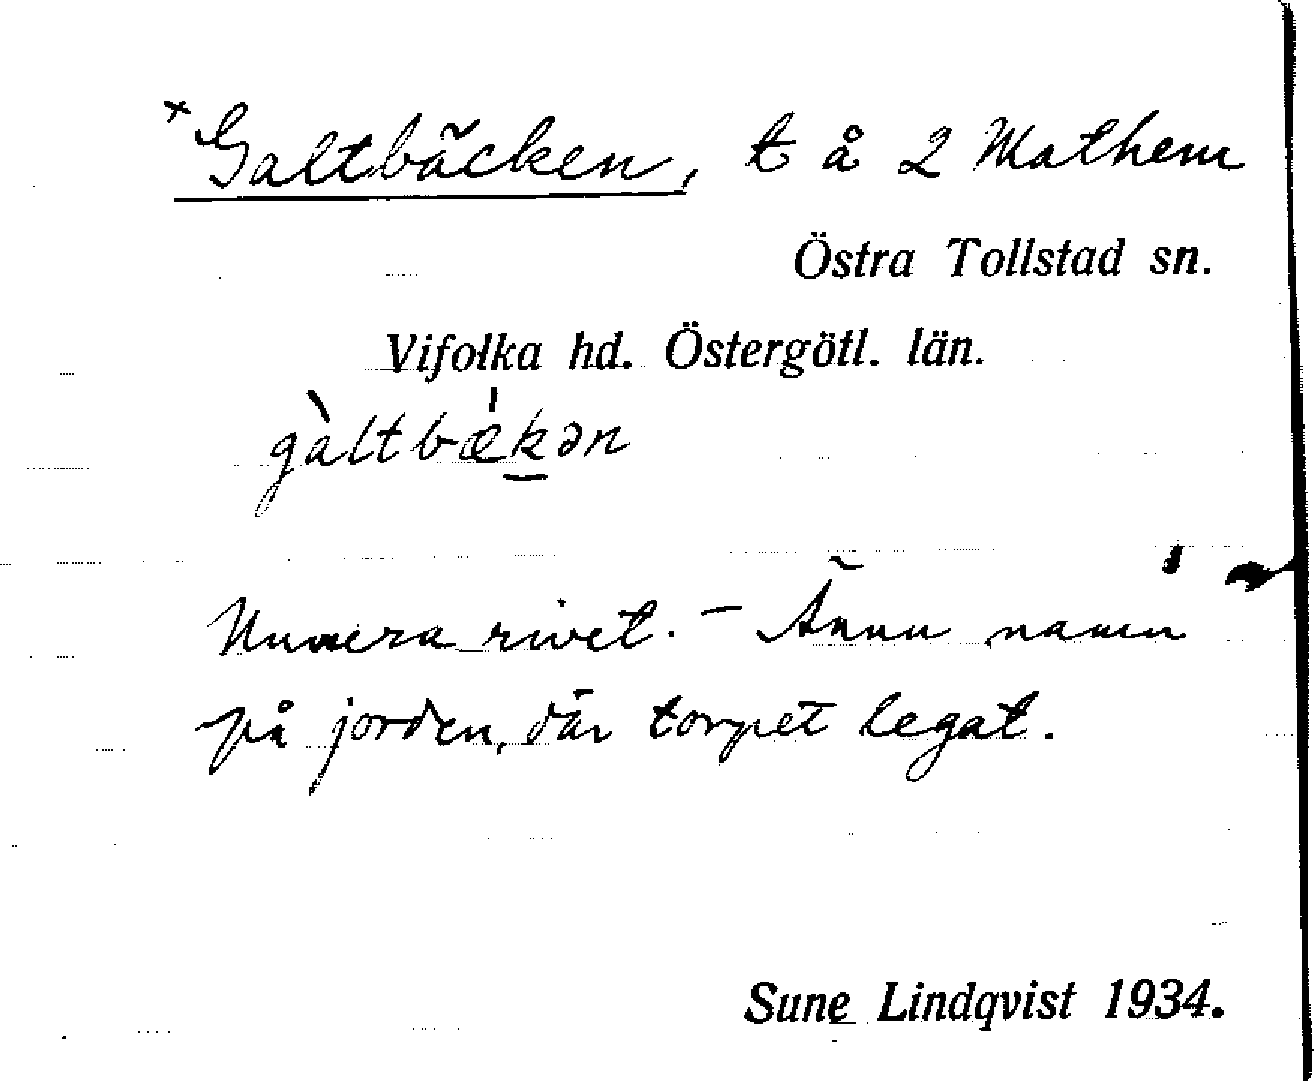 +Galtbäcken, t å 2 Mathem
Östra Tollstad sn.
Vifolka hd. Östergötl. län.
gàltbǽkən
Numera rivet. – Ännu namn
på jorden, där torpet legat.
Sune Lindqvist 1934.